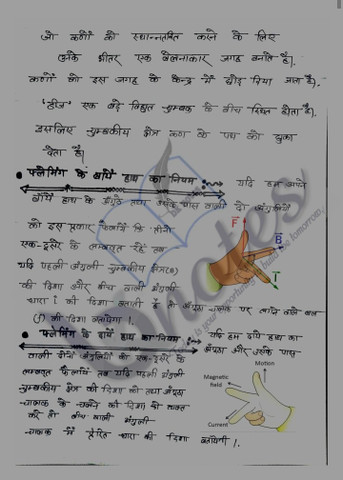 जो कणों को स्थानान्तरित करने के लिए
उनके भीतर एक बेलनाकार जगह बनाते हैं।
कणों को इस जगह के केन्द्र में छोड़ दिया जाता है।
'डीज' एक बड़े विद्युत चुम्बक के बीच स्थित होता है।
इसलिए चुम्बकीय क्षेत्र कण के पथ को झुका
देता है।
• फ्लेमिंग के बाँये हाथ का नियम : यदि हम अपने
बाँये हाथ के अंगूठे तथा उसके पास वाली दो अंगुलियों
को इस प्रकार फैलाये कि तीनों
एक-दूसरे के लम्बवत् रहें तब
यदि पहली अंगुली चुम्बकीय क्षेत्र(B)
की दिशा और बीच वाली अंगुली
धारा I की दिशा बताती है तो अंगूठा चालक पर लगने वाले बल
(f) की दिशा बतायेगा।
F
B
I
• फ्लेमिंग के दाँये हाथ का नियम : यदि हम दाँये हाथ का
अंगूठा और उसके पास
वाली दोनों अंगुलियों को एक-दूसरे के
लम्बवत् फैलायें तब यदि पहली अंगुली
चुम्बकीय क्षेत्र की दिशा को तथा अंगूठा
चालक के चलने की दिशा को व्यक्त
करे तो बीच वाली अंगुली
चालक में प्रेरित धारा की दिशा बतायेगी।
Motion
Magnetic
field
Current
notes